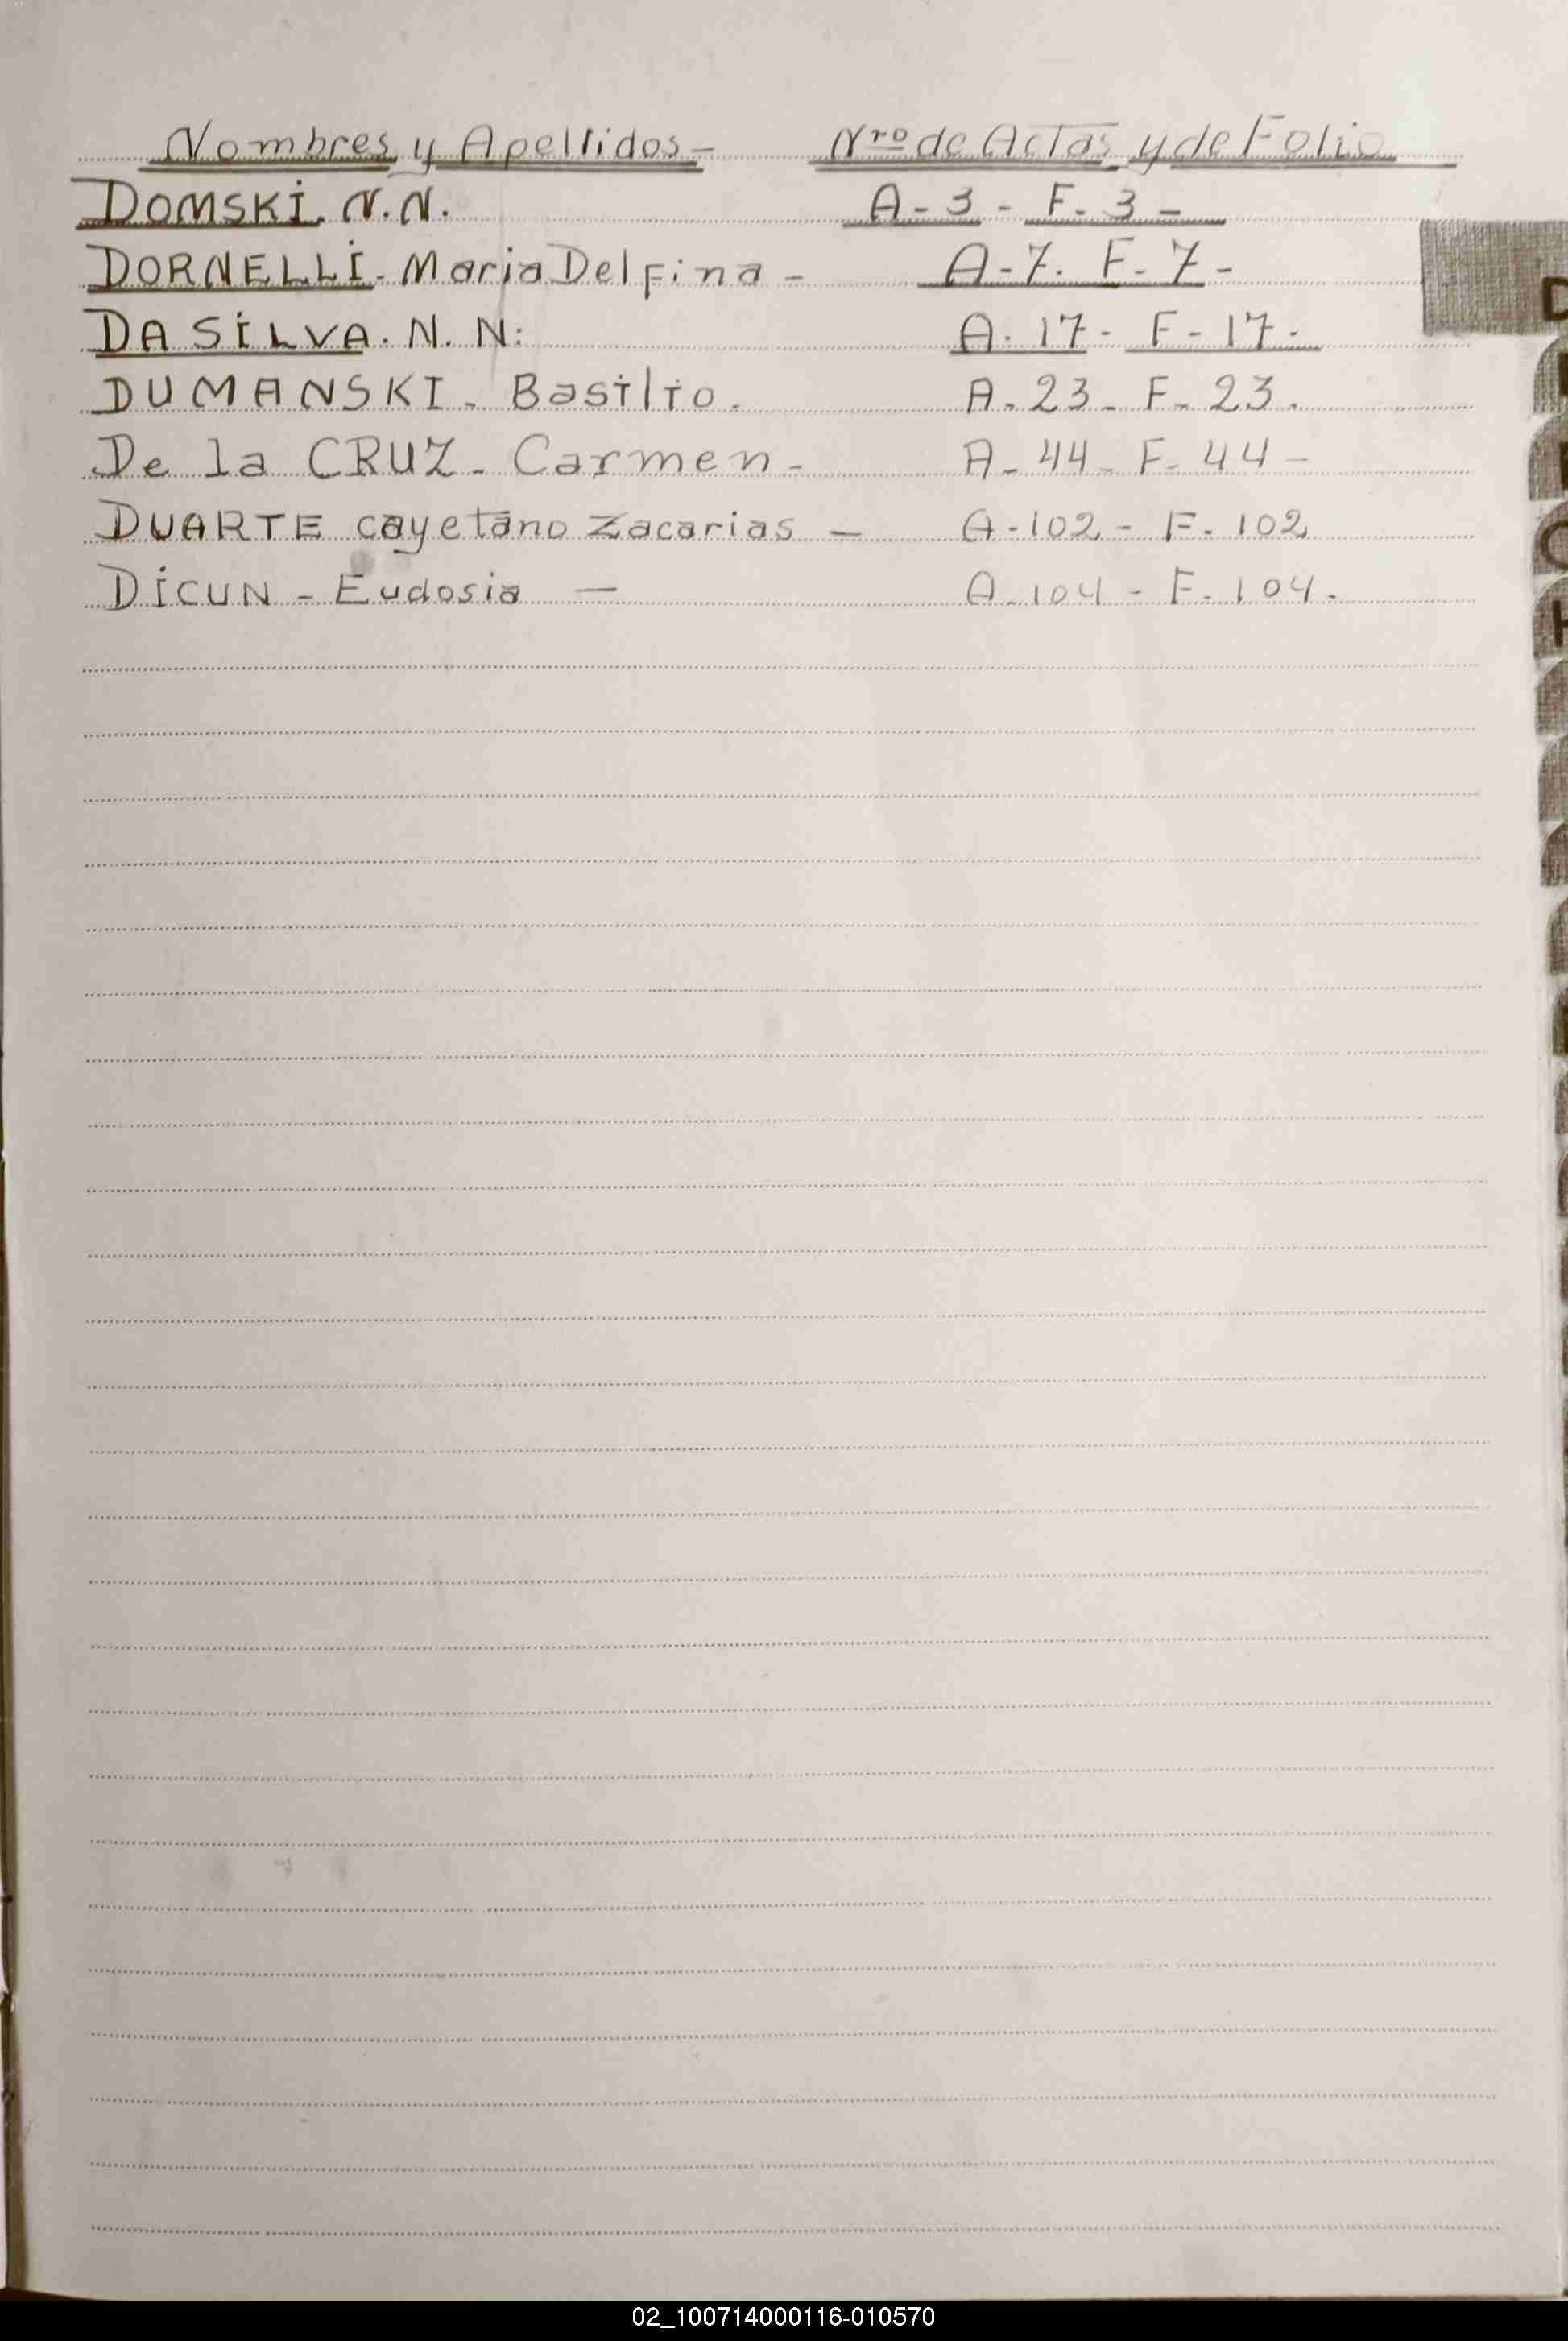 Nombres y Apellidos - Nro de Actas y de Folio
DOMSKI. N.N. A-3 - F-3 -
DORNELLI- Maria Delfina - A-7. F-7-
DA SILVA. N. N: A. 17- F-17-
DUMANSKI - Basilio. A. 23- F- 23.
De la CRUZ - Carmen - A- 44- F- 44 -
DUARTE cayetano Zacarias - A-102 - F. 102
DICUN - Eudosia - A-104 - F. 104.
D
02_100714000116-010570